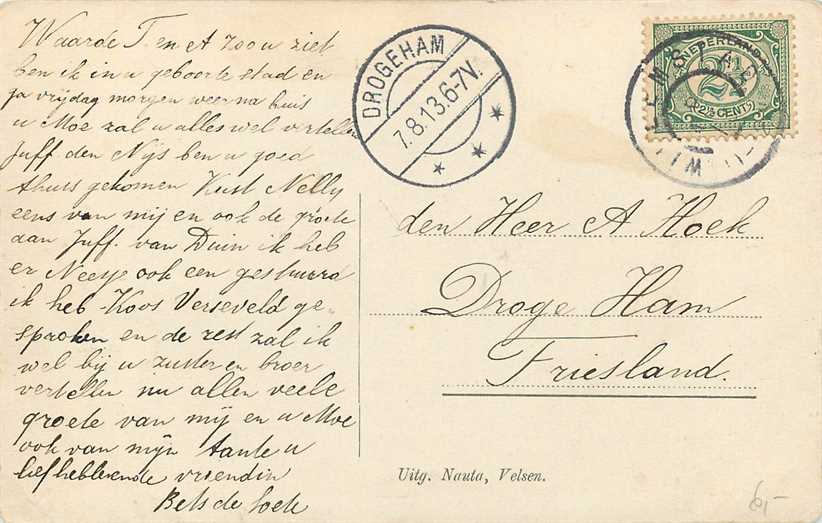 Waarde T. en A zoo u ziet
ben ik in u geboorte stad en
ga vrijdag morgen weer na huis
u Moe zal u alles wel vertellen
Juff. den Nijs ben u goed
thuis gekomen Kust Nelly
eens van mij en ook de groete
aan Juff. van Duin ik heb
er Neesje ook een gestuurd
ik heb Koos Verseveld ge-
sproken en de rest zal ik
wel bij u zuster en broer
vertellen nu allen veele
groete van mij en u Moe
ook van mijn tante u
liefhebbende vriendin
Bets de
DROGEHAM
7.8.13.6-7V.
NEDERLAND
2½
2½ CENT
den Heer A Hoek
Droge Ham
Friesland.
Uitg. Nauta, Velsen.
6,-